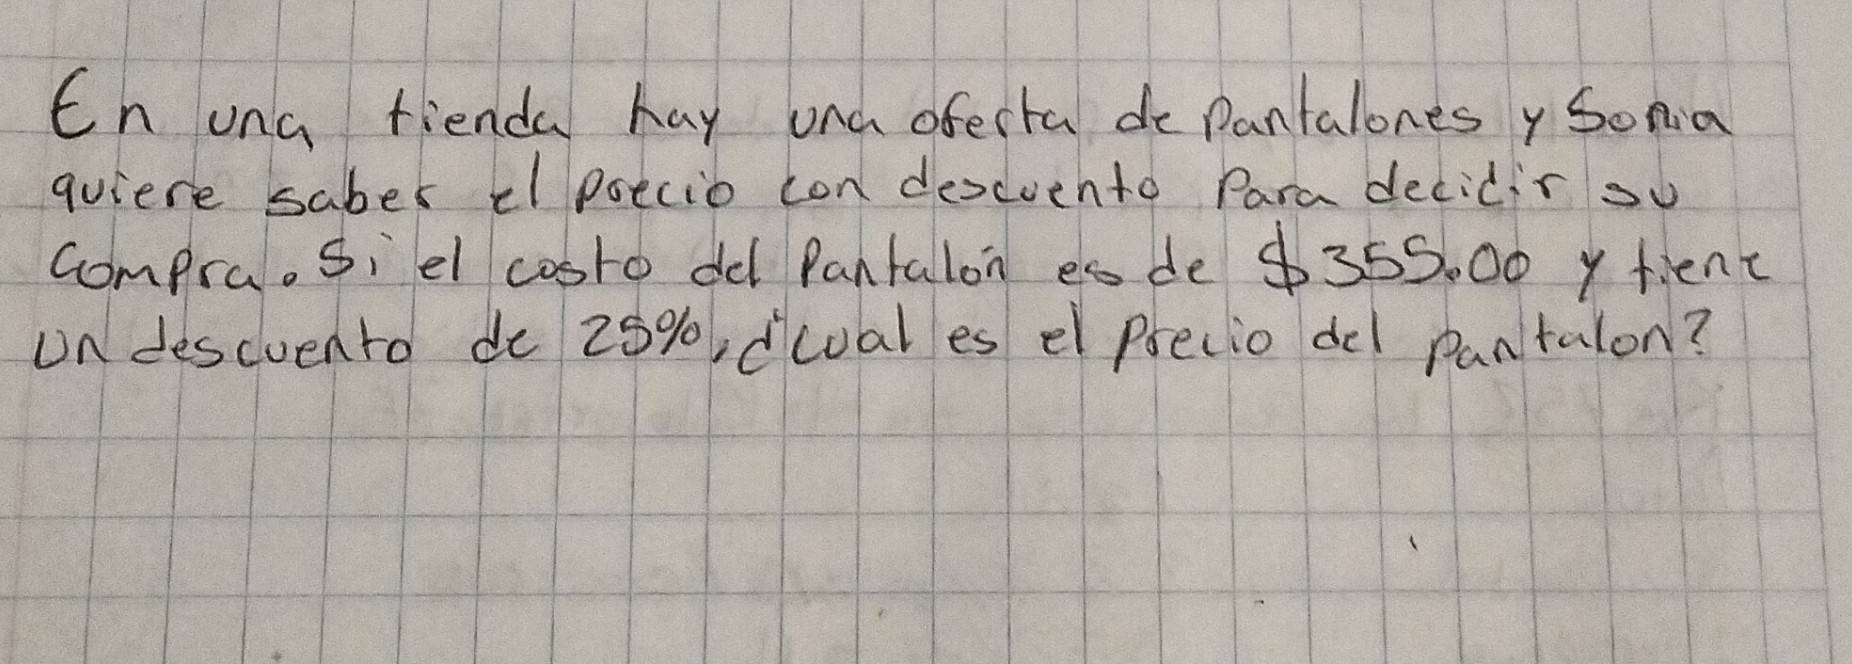 En una tienda hay una oferta de Pantalones y Sonia
quiere saber el precio con descuento Para decidir su
compra. Si el costo del Pantalón es de $355.00 y tiene
un descuento de 25%, ¿cual es el precio del pantalon?